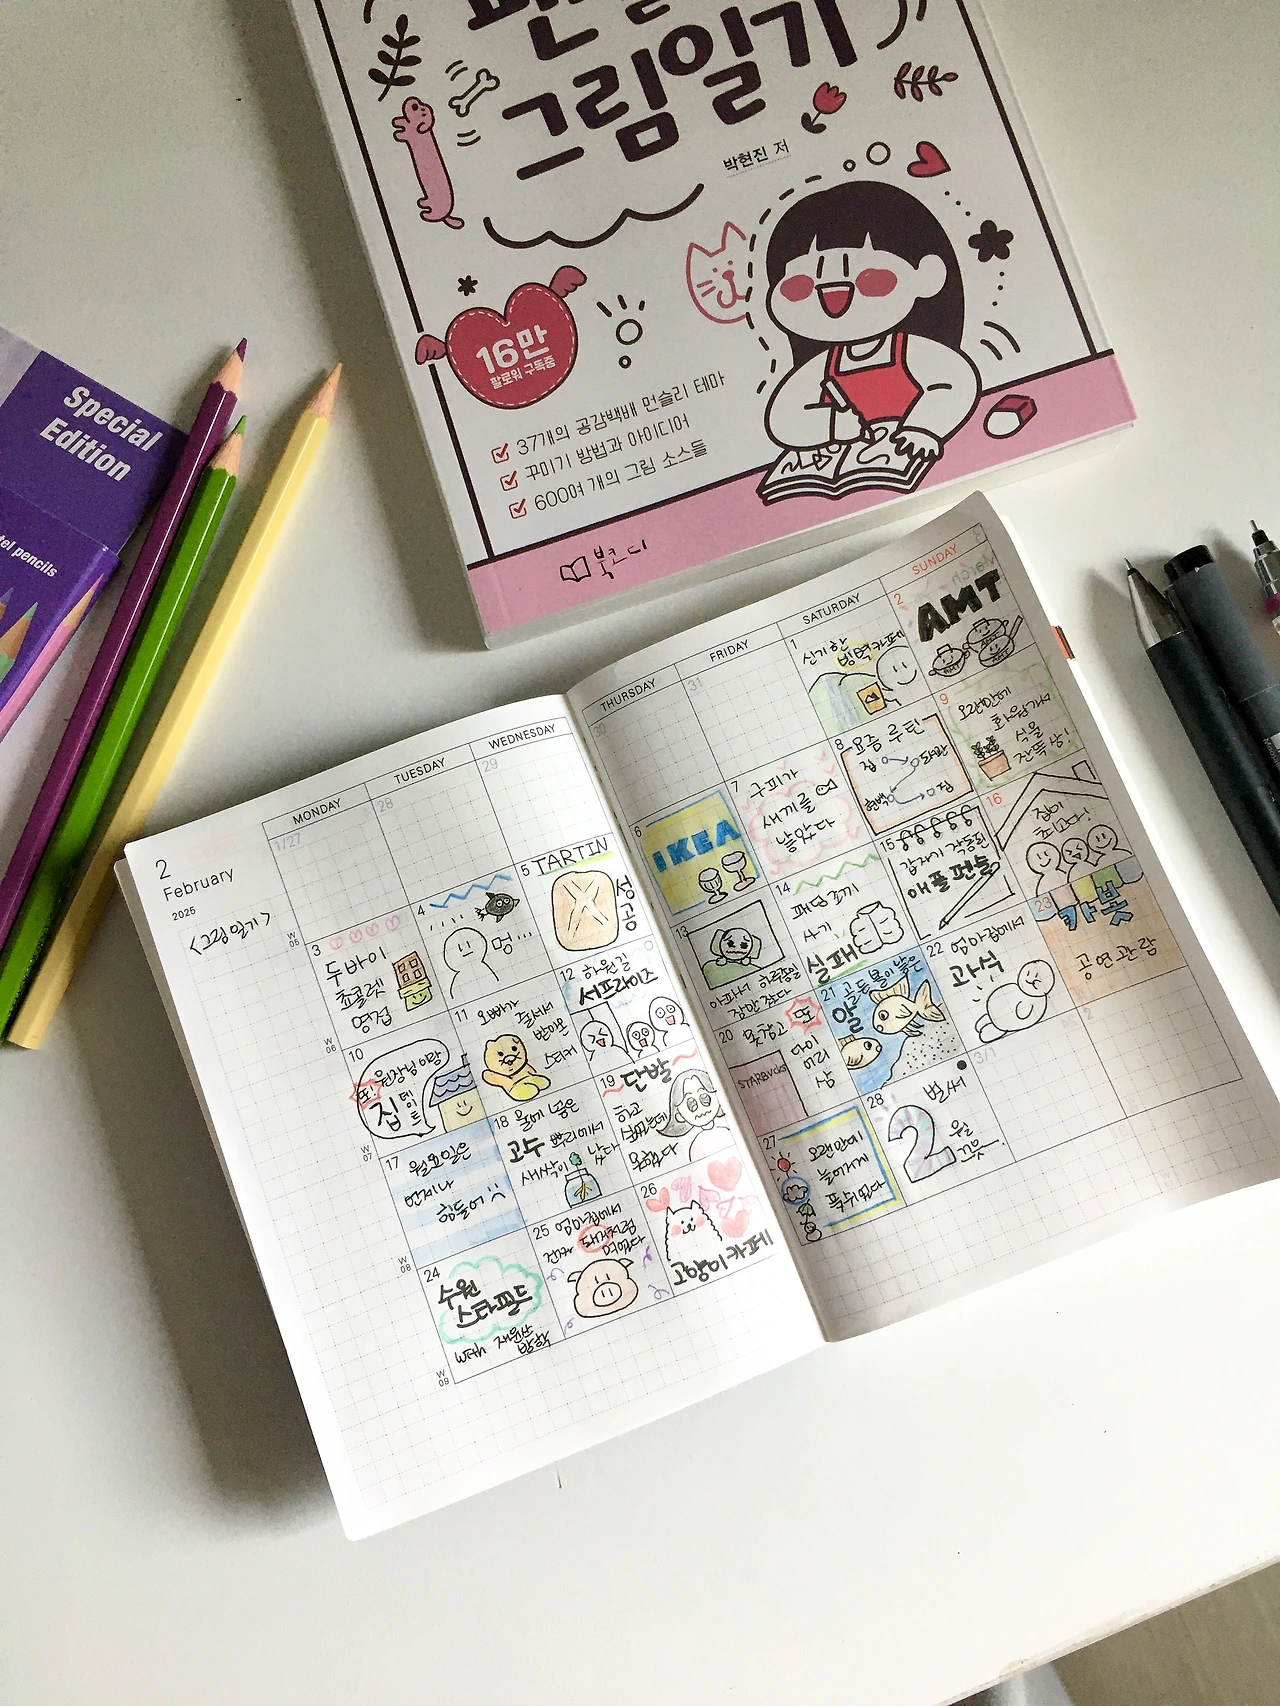 그림일기
박현진 저
16만
팔로워 구독중
37개의 공감백배 먼슬리 테마
꾸미기 방법과 아이디어
600여 개의 그림 소스들
북코디
Special
Edition
pencils
2
February
2025
<그림일기>
MONDAY
TUESDAY
WEDNESDAY
THURSDAY
FRIDAY
SATURDAY
SUNDAY
1/27
28
29
30
31
1
신기한
빙벽카페
2
AMT
W
05
3
두바이
쵸콜렛
영접
4
멍...
5
TARTIN
성공
6
IKEA
7
구피가
새끼를
낳았다
8
요즘 루틴
집
현백
집
9
오랜만에
화원가서
식물
잔뜩 삼!
W
06
10
또!
원장님이랑
집
데이트
11
오빠가
줄서서
받아온
스티커
12
하원길
서프라이즈
13
아파서 하루종일
잠만 잤다
14
패딩조끼
사기
실패
15
갑자기 작동된
애플펜슬
16
집이
최고다!
W
07
17
월요일은
언제나
힘들어
18
물에 넣은
고수 뿌리에서
새싹이 났다
19
단발
하고
싶었는데
못했다
20
못참고
또
다이어리
삼
STARBUCKS
21
골든볼이 낳은
알
22
엄마집에서
과식
23
카봇
공연관람
W
08
24
수원
스타필드
with
방학
25
엄마집에서
진짜 돼지처럼
먹었다
26
고양이카페
27
오랜만에
늘어지게
푹쉬었다
28
벌써
2월
끝
3/1
2
W
09